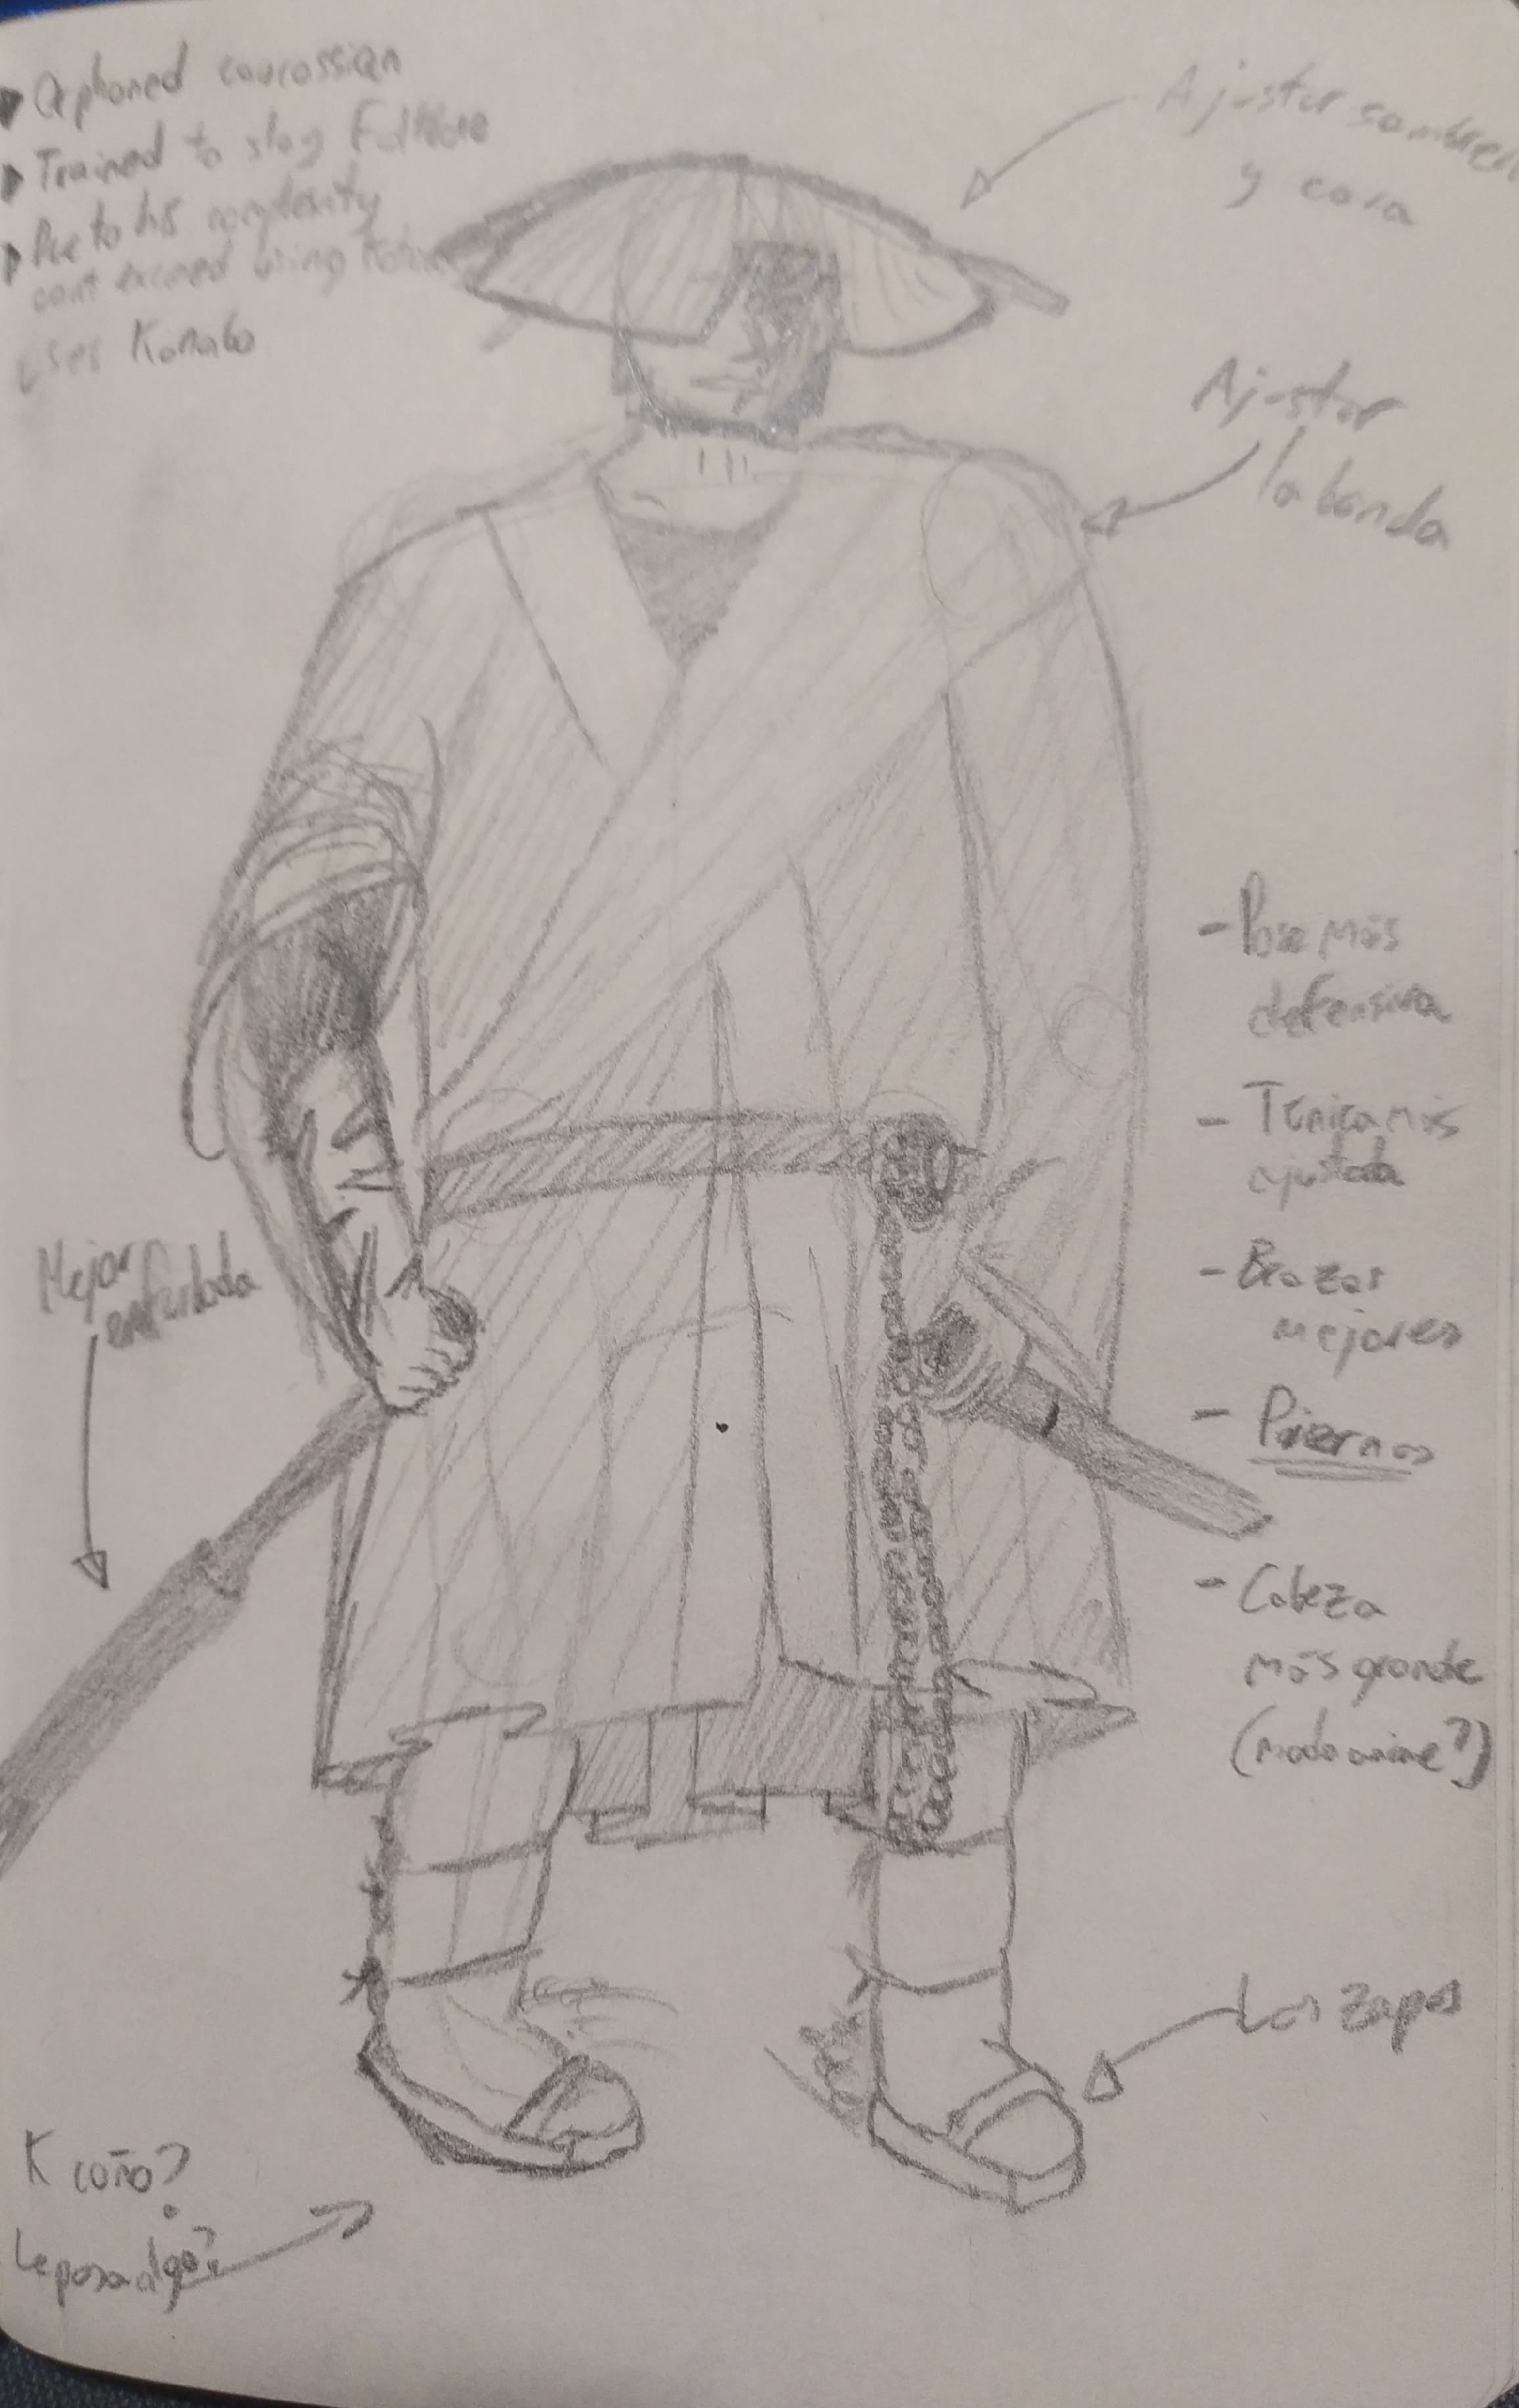 Orphaned caucassian
Trained to slay Folklore
Due to his complexity
cant exceed using
uses Kanabo
Ajustar sombrero
y cara
Ajustar
la banda
- Pose más
defensiva
- Tunica más
ajustada
- Brazos
mejores
- Piernas
- Cabeza
más grande
(modo anime?)
Mejor
enfundada
Los zapos
K coño?
Le pasa algo?